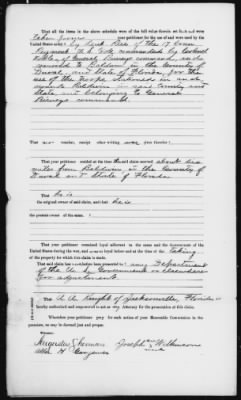 That all the items in the above schedule were of the full value therein set forth and were
taken from your petitioner for the use of and were used by the
United States
by the 17 Conn
Regiment U S Vols commanded by Colonel
of General Birneys command, and
removed to Baldwin in the County of
Duval and State of Florida, for the
use of the troops stationed in and
around Baldwin in said County and
State and belonging to General
Birneys command.
That no voucher, receipt or other writing was given therefor
That your petitioner resided at the time said claim accrued about six
miles from Baldwin in the County of
Duval and State of Florida.
That he is
the original owner of said claim, and that he is
the present owner of the same.
That your petitioner remained loyal adherent to the cause and the Government of the
United States during the war, and was so loyal before and at the time of the taking
of the property for which this claim is made.
That said claim has not before been presented to any Department
of the U.S. Government or elsewhere
for adjustment.
That Knight of Jacksonville, Florida is
hereby authorized and empowered to act as my Attorney for the prosecution of this claim.
Wherefore your petitioner prays for such action of your Honorable Commission in the
premises, as may be deemed just and proper.
Witnesses:
Alexander
Joseph Wilkinson